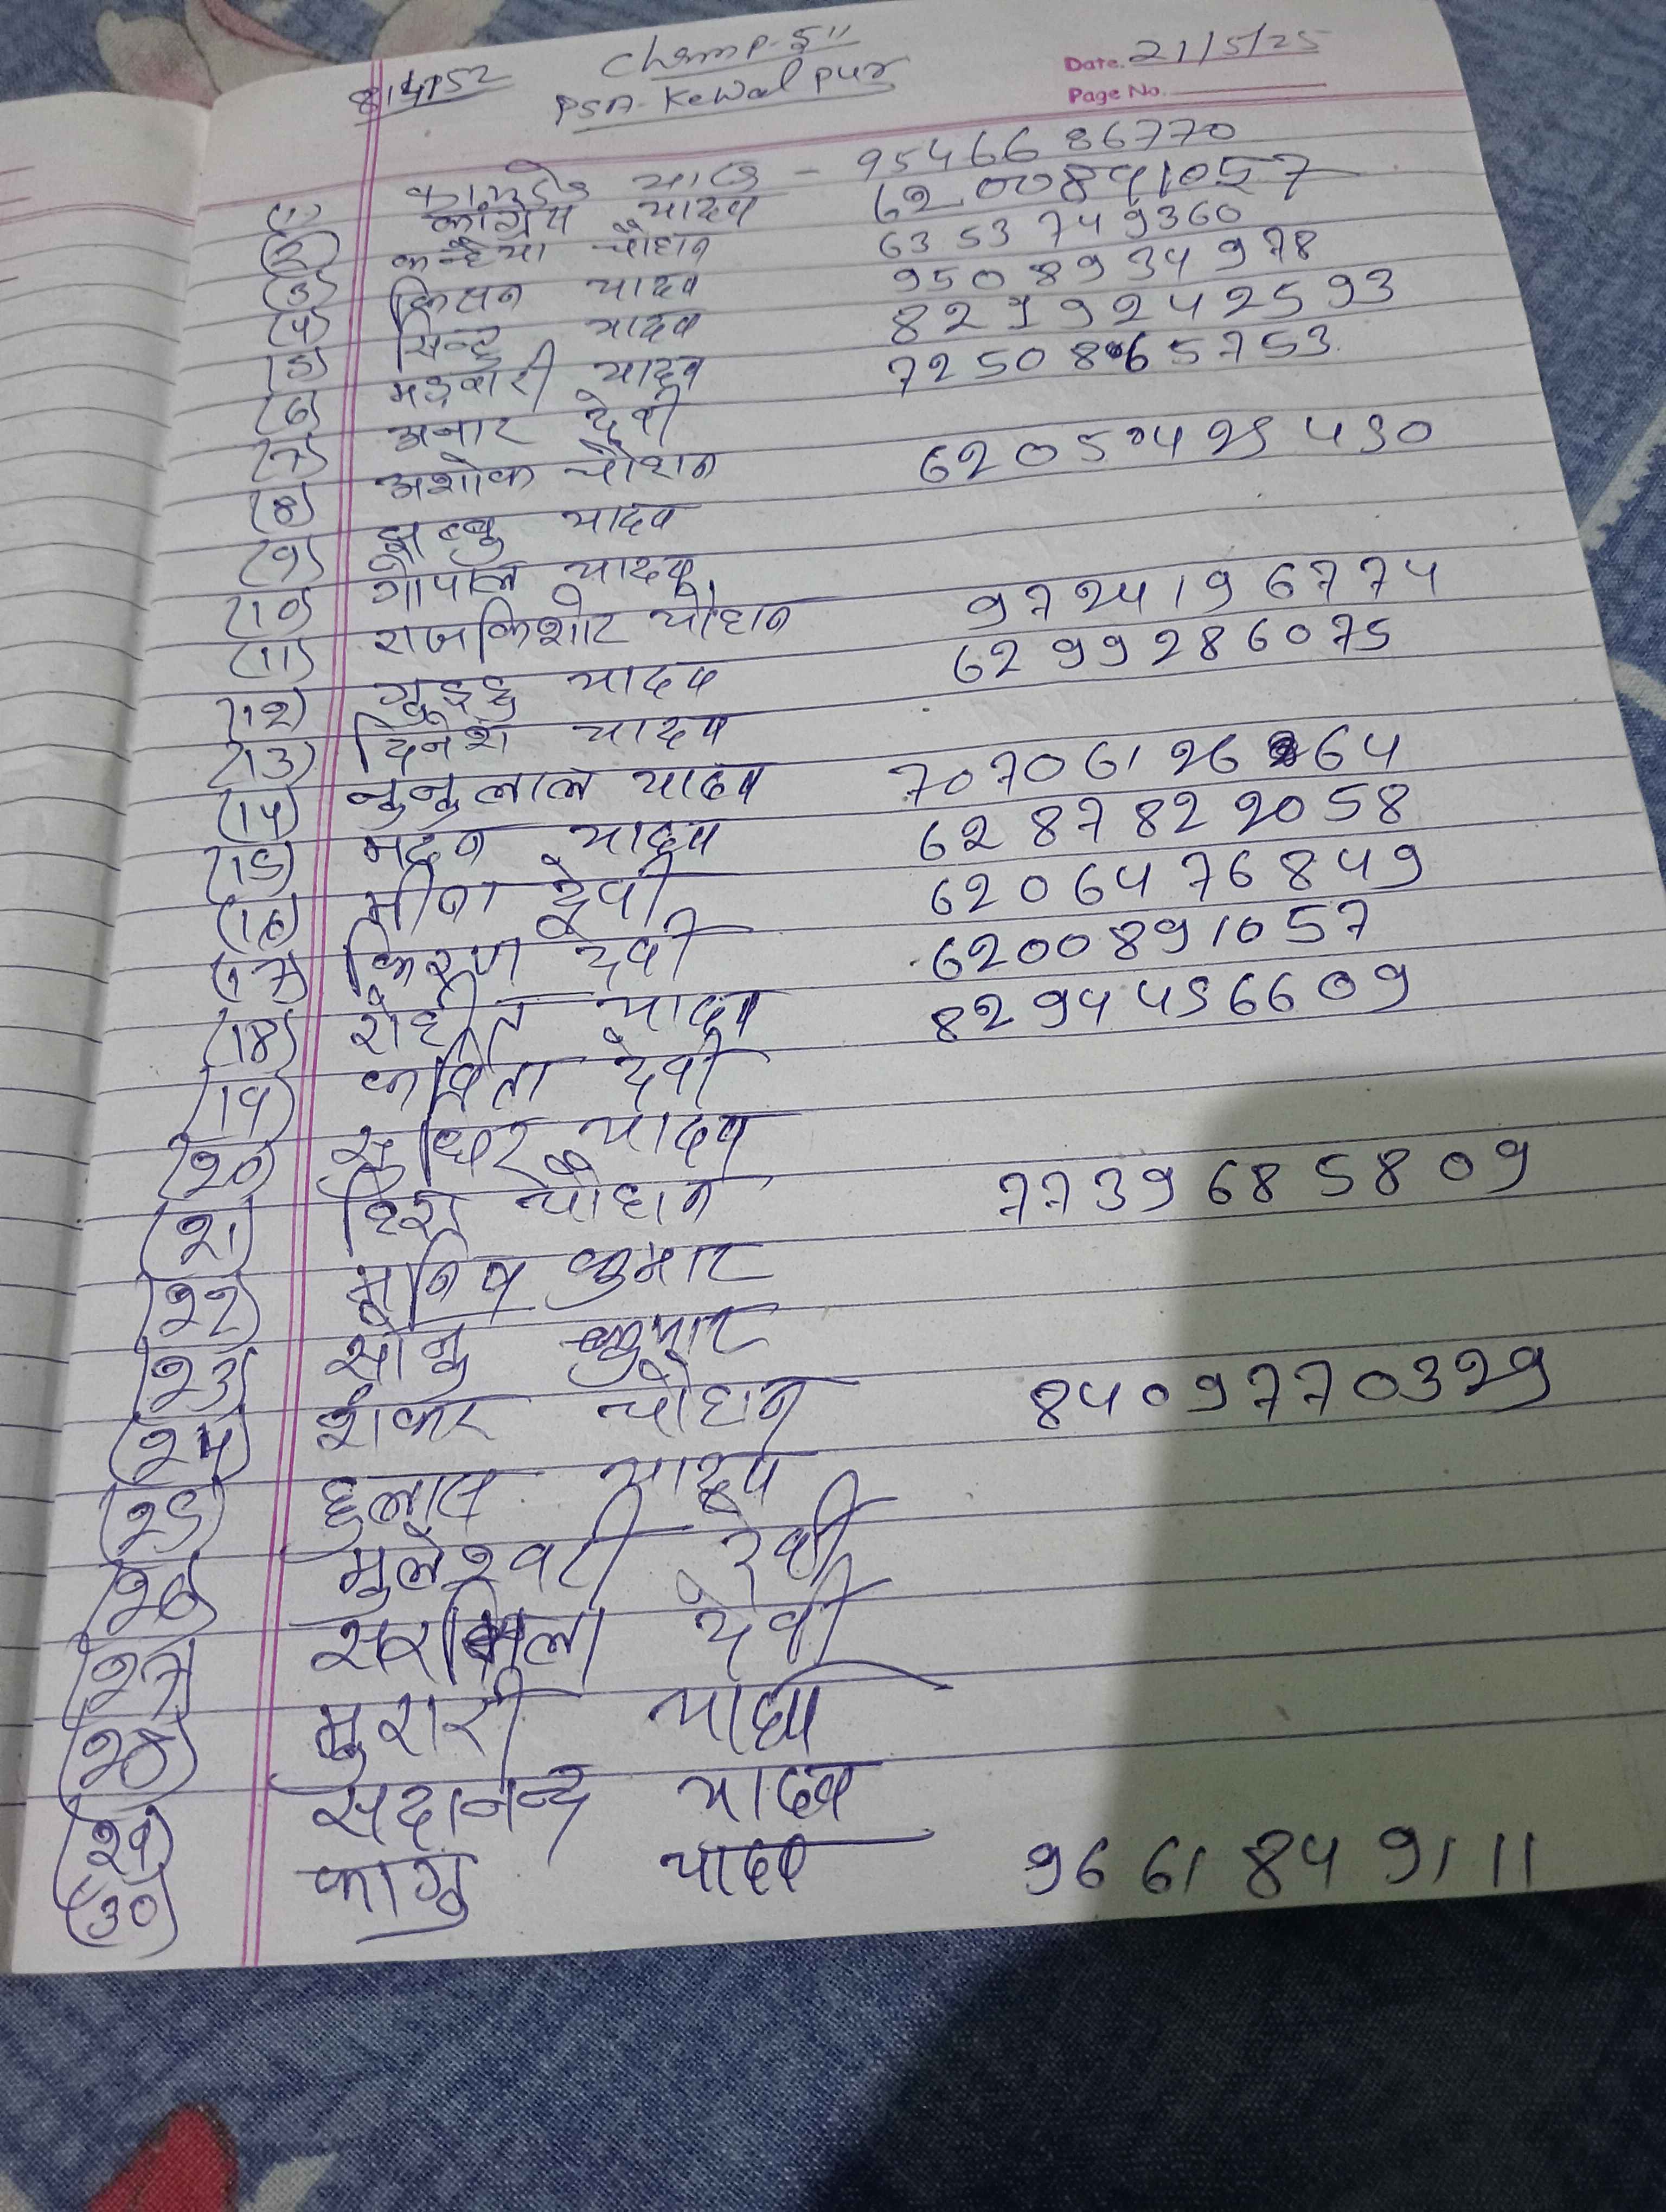 Champ-5"
PSA-Kewalpur
Date. 21/5/25
Page No.
(1) यादव - 9546686770
(2) कांग्रेस यादव 6200891057
(3) कन्हैया चौहान 6353749360
(4) किसन यादव 9508934978
(5) सिन्टु यादव 8299242593
(6) मड़वारी यादव 7250865753
(7) अनार देवी
(8) अशोक चौहान 620 425430
(9) झब्बु यादव
(10) गोपाल यादव
(11) राजकिशोर चौहान 9724196774
(12) गुड्डु यादव 6299286075
(13) दिनेश यादव
(14) नुनुलाल यादव 7070612664
(15) मदन यादव 6287822058
(16) मीना देवी 6206476849
(17) किरण देवी 6200891057
(18) रोहीत यादव 8294456609
(19) कविता देवी
(20) सुधिर यादव
(21) चौहान 7739685809
(22) मुनिष कुमार
(23) सोनु कुमार
(24) शंकर चौहान 8409770329
(25) हुलास यादव
(26) मुलेश्वरी देवी
(27) सरमिला देवी
(28) मुरारी यादव
(29) सदानन्द यादव
(30) कागु यादव 9661849111